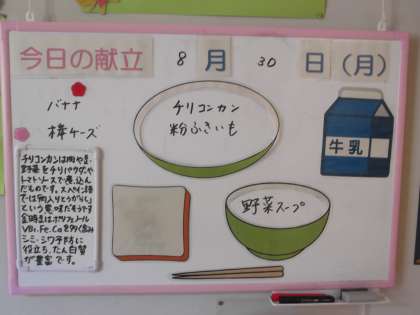 今日の献立 8月30日(月)
バナナ
棒チーズ
チリコンカン
粉ふきいも
牛乳
野菜スープ
チリコンカンは肉や豆、
野菜をチリパウダーや
トマトソースで煮込ん
だものです。スペイン語
では「肉入りとうがらし」
という意味だそうです
金時豆はポリフェノール
VB1、Fe、Caを多く含み
シミ・シワ予防に
役立ち、たん白質
が豊富です。